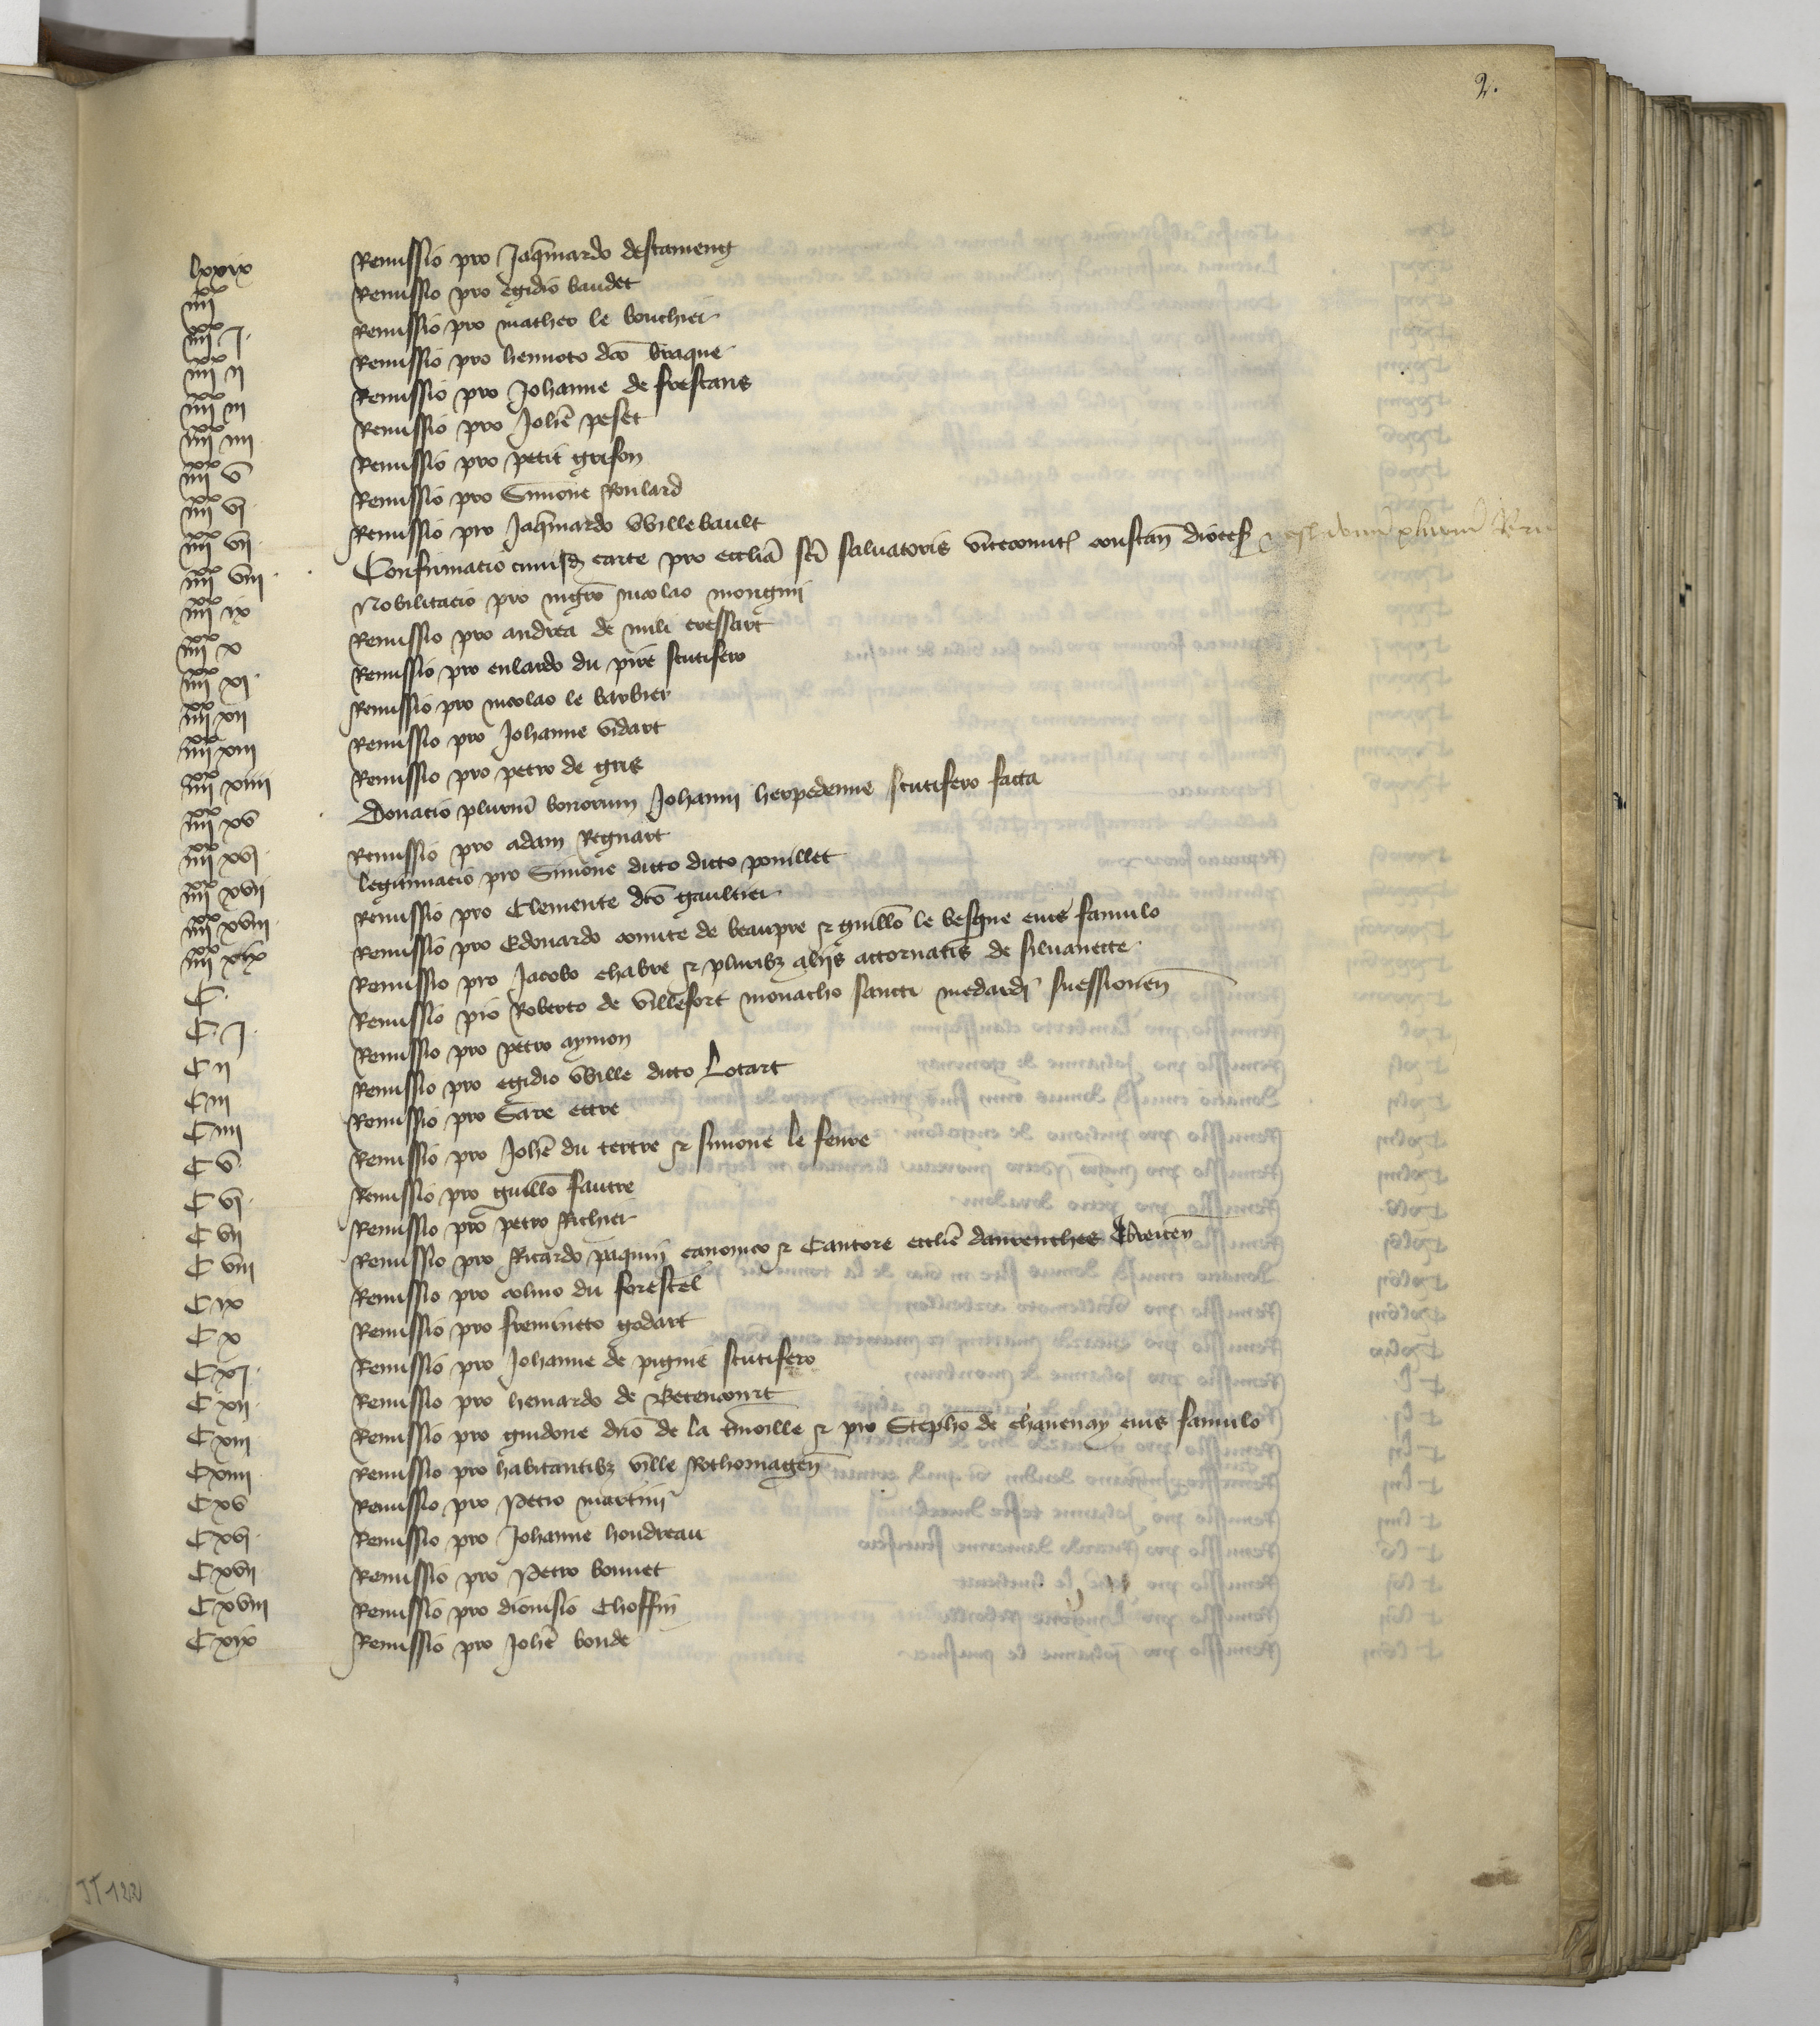 2.
lxxix Remissio pro Jaqmardo destameng
iiii xx Remissio pro egidio baudet
iiii xx j. Remissio pro matheo le bouchier
iiii xx ii Remissio pro hennoto dco braque
iiii xx iii Remissio pro Johanne de frestans
iiii xx iiii Remissio pro Johe peset
iiii xx v Remissio pro petit grison
iiii xx vj. Remissio pro Simone Roulard
iiii xx vii Remissio pro Jaqmardo Willebault
iiii xx viii Confirmacio cuiusd carte pro ecclia sci Saluatoris vicecomit constan dioces
iiii xx ix Nobilitacio pro mgro nicolao mongini
iiii xx x Remissio pro andrea de mili cressart
iiii xx xi Remissio pro enlardo du pire scutifero
iiii xx xii Remissio pro nicolao le barbier
iiii xx xiii Remissio pro Johanne vidart
iiii xx xiiii Remissio pro petro de gris
iiii xx xv Donacio plurium bonorum Johanni herpedenne scutifero facta
iiii xx xvj Remissio pro adam Regnart
iiii xx xvii legitimacio pro Simone dicto dicto pouillet
iiii xx xviii Remissio pro Clemente dco gaultier
iiii xx xix Remissio pro Edouardo comite de beaupre et guillo le besgue eius famulo
C. Remissio pro Jacobo chabre et pluribz aliis attornatis de siluanecte
C j. Remissio pro Roberto de villefort monacho sancti medardi suessionen
C ii Remissio pro petro aymon
C iii Remissio pro egidio Wille dicto Lotart
C iiii Remissio pro Sare ettre
C v Remissio pro Johe du tertre et simone le feure
C vj. Remissio pro guillo fautre
C vii Remissio pro petro Richier
C viii Remissio pro Ricardo paquin canonico et Cantore ecclie daurenches Ebroicen
C ix Remissio pro colino du forestel
C x Remissio pro freminetto godart
C xj. Remissio pro Johanne de pignie scutifero
C xii Remissio pro heinardo de Betencourt
C xiii Remissio pro guidone dno de la tmoille et pro Stepho de chauenay eius famulo
C xiiii Remissio pro habitantibz ville Rothomagen
C xv Remissio pro Petro martini
C xvj Remissio pro Johanne houdreau
C xvii Remissio pro Petro bonnet
C xviii Remissio pro dionisio Choffin
C xix Remissio pro Johe bonde
JJ 122